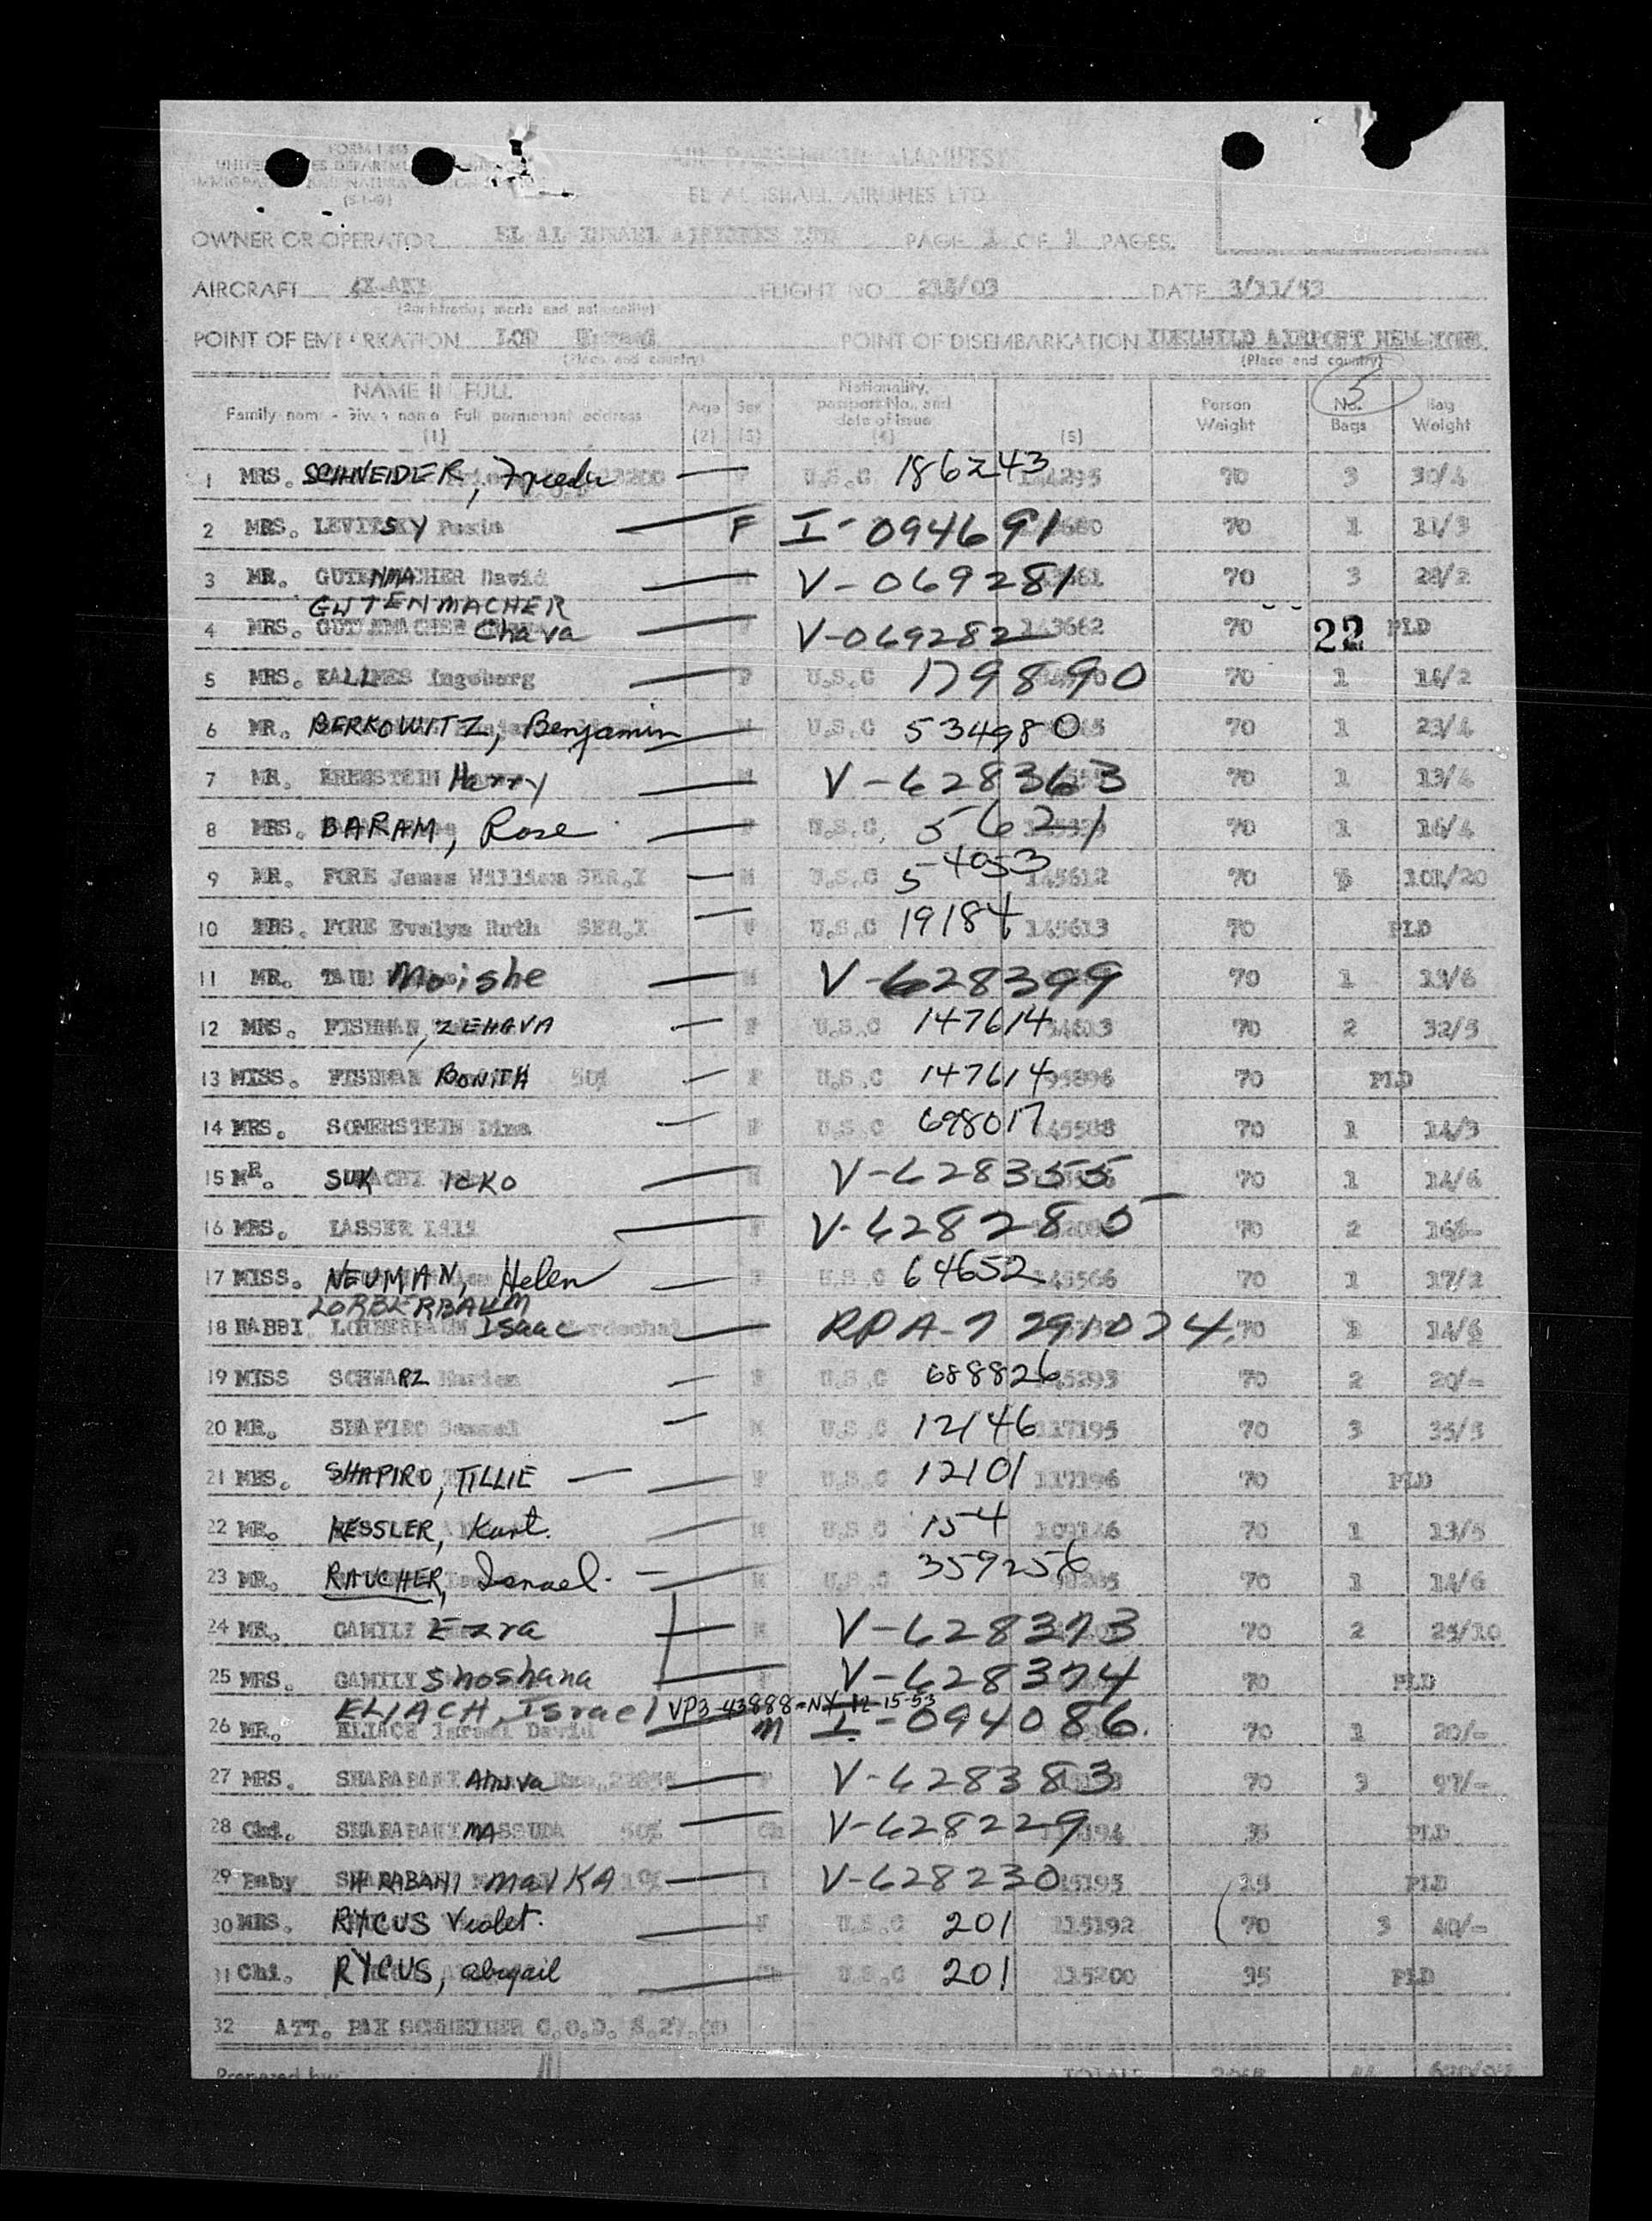 FORM I-
UNITED STATES DEPARTMENT
IMMIGRATION AND NATURALIZATION
AIR PASSENGER MANIFEST
EL AL ISRAEL AIRLINES LTD
OWNER OR OPERATOR EL AL ISRAEL AIRLINES LTD PAGE 1 OF 1 PAGES.
AIRCRAFT FLIGHT NO DATE 3/11/53
(Registration marks and nationality)
POINT OF EMBARKATION LOD Israel POINT OF DISEMBARKATION IDELWILD AIRPORT NEW YORK
(Place and country) (Place and country)
NAME IN FULL Age Sex Nationality, passport No., and date of issue Person Weight No. Bags Bag Weight
Family name - Given name Full permanent address
(1) (2) (3) (4) (5)
5
1 MRS. SCHNEIDER, Frieda — U.S.C 186243 70 3 30/4
2 MRS. LEVITSKY — F I-094691 70 1 11/3
3 MR. GUTENMACHER David — V-069281 70 3 28/2
GUTENMACHER
4 MRS. Chava — V-069282 143662 70 22 PLD
5 MRS. Ingeborg — F U.S.C 179890 70 1 14/2
6 MR. BERKOWITZ, Benjamin — M U.S.C 534980 70 1 23/4
7 MR. Harry — V-628363 70 1 13/4
8 MRS. BARAM, Rose — U.S.C. 5621 70 1 16/4
9 MR. FORE James William SER.I — M U.S.C 54053 145612 70 101/20
10 MRS. FORE Evelyn Ruth SER.I — F U.S.C 19184 145613 70 PLD
11 MR. TAUB Moishe — M V-628399 70 1 13/6
12 MRS. FISHMAN, ZEHAVA — F U.S.C 147614 70 2 32/5
13 MISS. FISHMAN BONITH 50% — F U.S.C 147614 70 PLD
14 MRS. SOMERSTEIN Dina — F U.S.C 698017 70 1 14/3
15 MR. IOKO — M V-628355 70 1 14/6
16 MRS. LASSER — F V-628280 70 2
17 MISS. NEUMAN, Helen — F U.S.C 64652 145566 70 1 17/2
LORBERBAUM
18 RABBI Isaac — RPA-7291024 70 1 14/6
19 MISS SCHWARZ — F U.S.C 688826 70 2 20/-
20 MR. SHAPIRO Samuel — M U.S.C 12146 117195 70 3 35/5
21 MRS. SHAPIRO, TILLIE — — F U.S.C 12101 117196 70 PLD
22 MR. KESSLER, Kurt. — M U.S.C 154 70 1 13/5
23 MR. RAUCHER, Israel. — — M U.S.C 359256 70 1 14/6
24 MR. GAMILI Ezra — M V-628373 70 2 25/10
25 MRS. GAMILI Shoshana — V-628374 70 PLD
ELIACH, Israel VP3-43888-NY-12-15-53
26 MR. ELIACH Israel David M I-094086. 70 1 20/-
27 MRS. SHARABANI Ahuva — F V-628383 70 3 97/-
28 Chi. SHARABANI MASSUDA 50% — Ch V-628229 35 PLD
29 Baby SHARABANI MALKA — I V-628230 15 PLD
30 MRS. RYCUS Violet. — F U.S.C 201 115192 70 3 40/-
31 Chi. RYCUS, abigail — Ch U.S.C 201 115200 35 PLD
32 ATT. PAX SCHNEIDER C.O.D.
Prepared by: TOTAL: